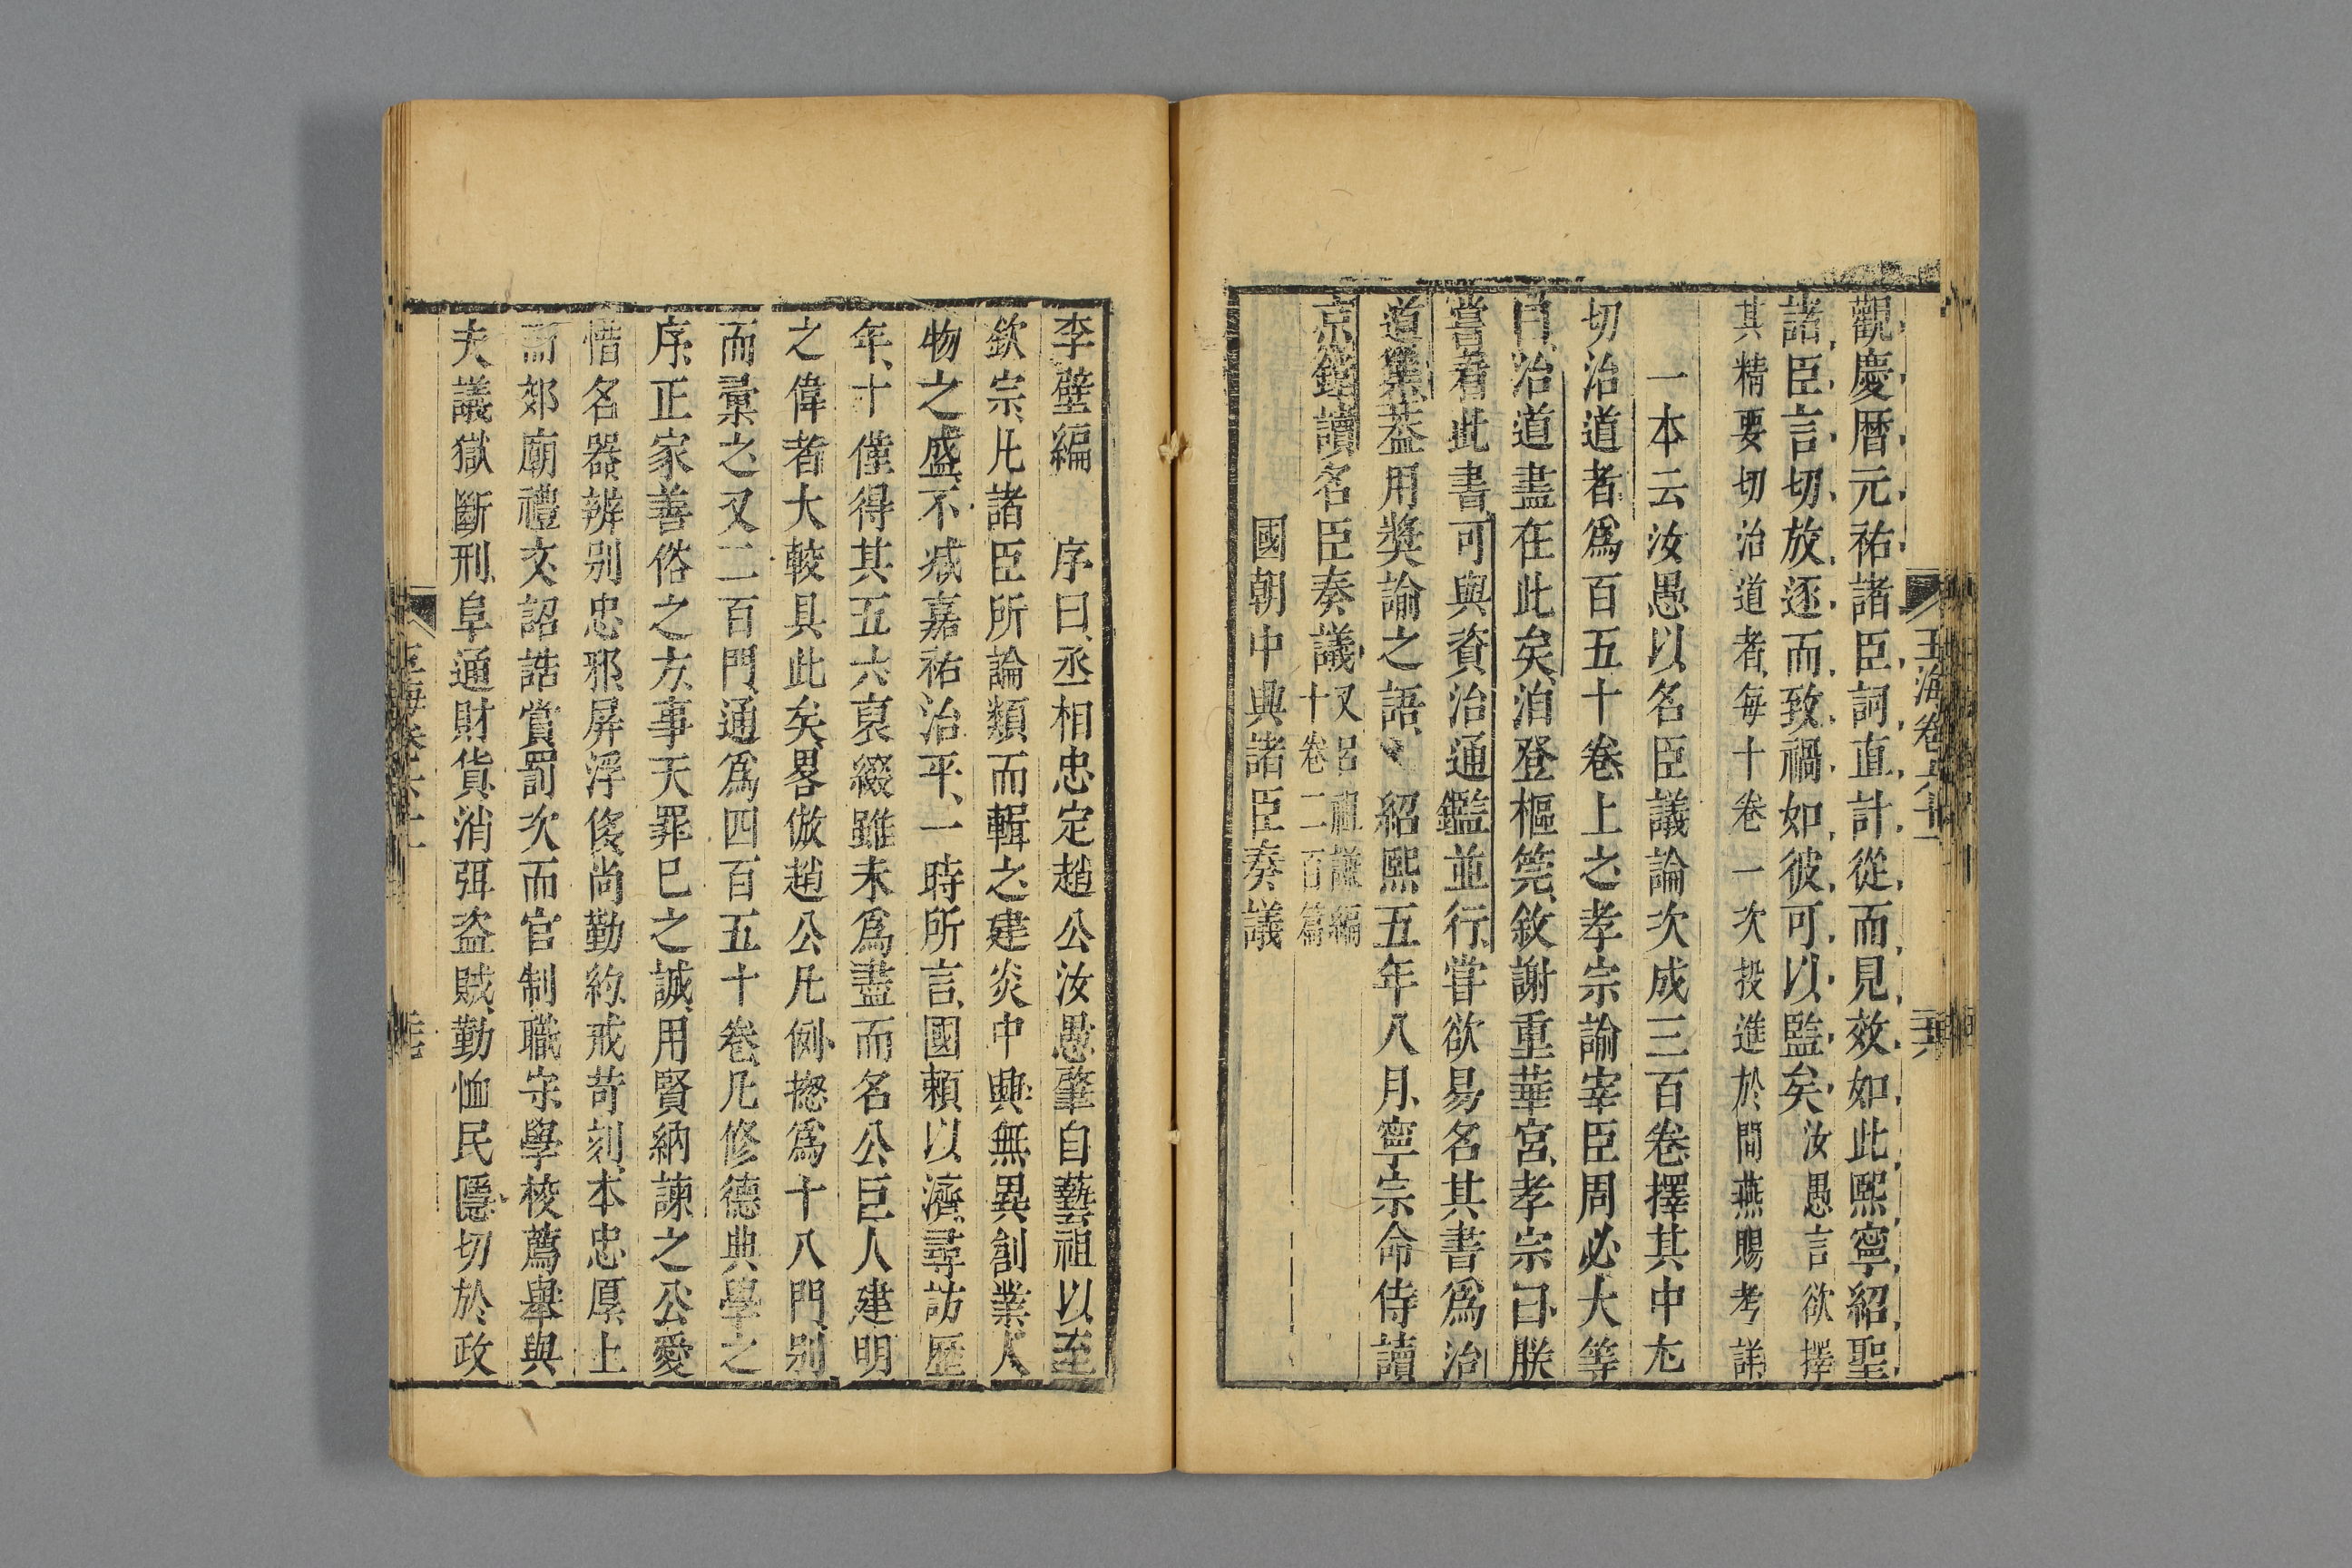 觀慶曆元祐諸臣詞直計從而見效如此熙寧紹聖
諸臣言切放逐而致禍如彼可以監矣汝愚言欲擇
其精要切治道者每十卷一次投進於間燕賜考詳
一本云汝愚以名臣議論次成三百卷擇其中尤
切治道者爲百五十卷上之孝宗論宰臣周必大等
曰治道盡在此矣洎登樞筦敘謝重華宮孝宗曰朕
嘗看此書可與資治通鑑並行嘗欲易名其書爲治
道集葢用奬諭之語紹熙五年八月寧宗命侍讀
京鏜讀名臣奏議又呂祖謙編
十卷二百篇
國朝中興諸臣奏議
玉海卷六十一
李壁編 序曰丞相忠定趙公汝愚肇自藝祖以至
欽宗凡諸臣所論類而輯之建炎中興無異創業人
物之盛不減嘉祐治平一時所言國賴以濟尋訪歷
年十僅得其五六裒綴雖未爲盡而名公巨人建明
之偉者大較具此矣畧倣趙公凡例揔爲十八門别
而彙之又二百門通爲四百五十卷凡修德典學之
序正家善俗之方事天罪已之誠用賢納諫之公愛
惜名器辨别忠邪屏浮侈尚勤約戒苛刻本忠厚上
而郊廟禮文詔誥賞罰次而官制職守學校薦舉與
夫議獄斷刑阜通財貨消弭盗賊勤恤民隱切於政